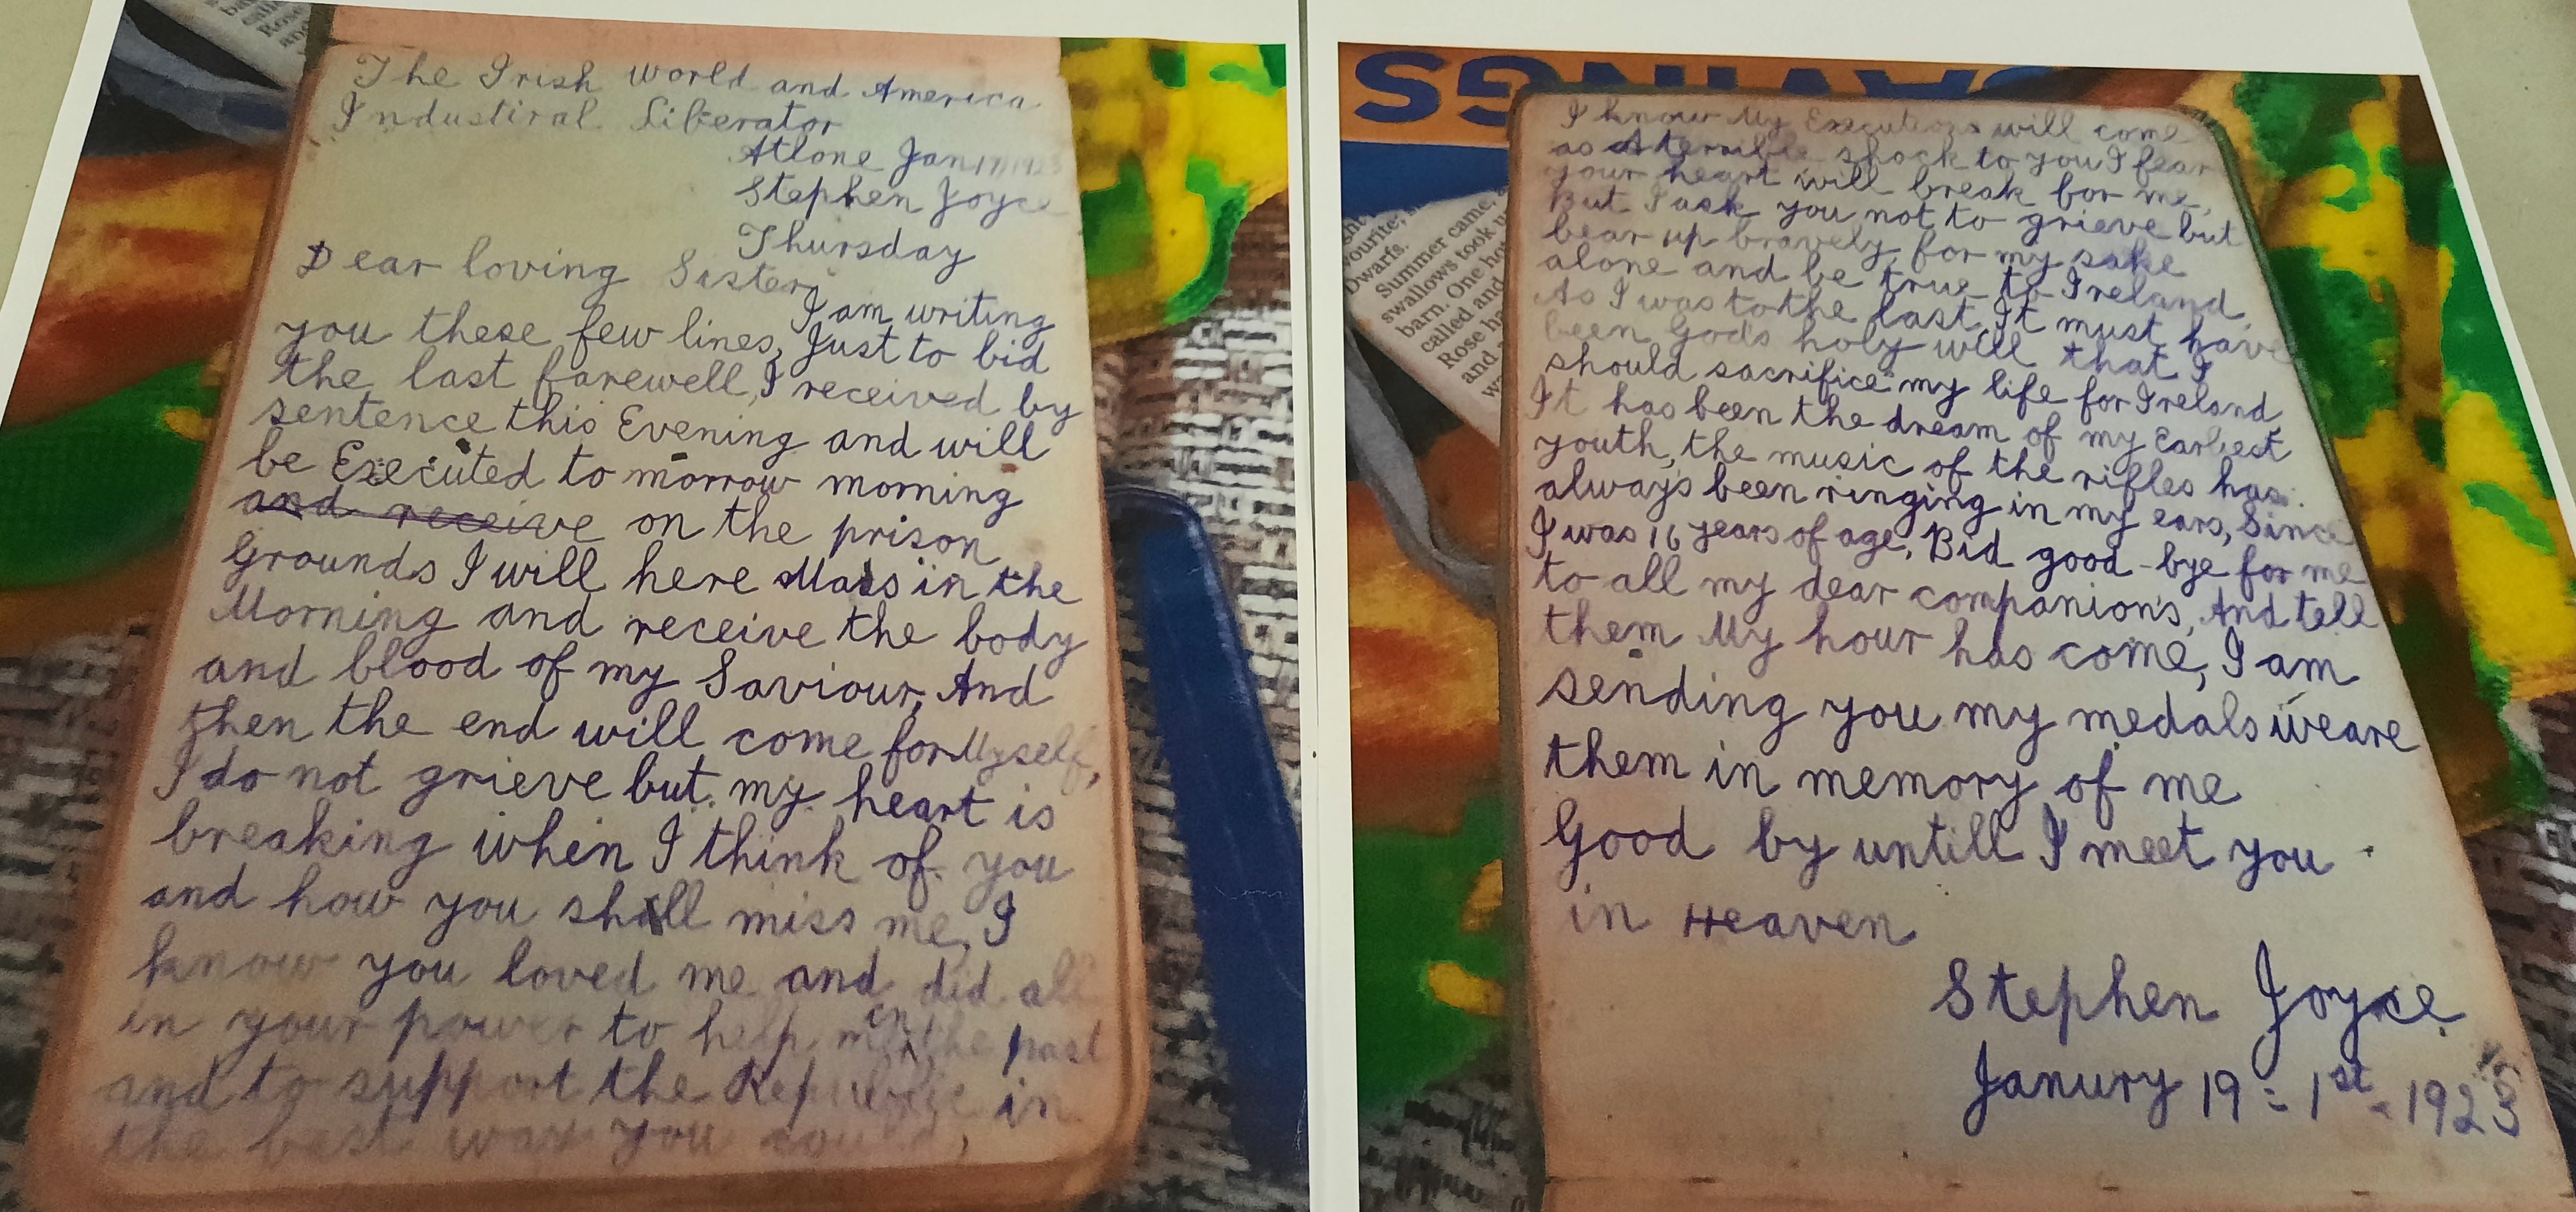 The Irish World and America
Industiral Liberator
Atlone Jan 17/1923
Stephen Joyce
Thursday
Dear loving Sister,
I am writing
you these few lines, Just to bid
the last farewell, I received by
sentence this Evening and will
be Executed to morrow morning
and receive on the prison
Grounds I will here Mass in the
Morning and receive the body
and blood of my Saviour, And
then the end will come for Myself,
I do not grieve but my heart is
breaking when I think of you
and how you shall miss me, I
know you loved me and did all
in your power to help me in the past
and to support the Republic in
the best way you could,
SAVINGS
I know My Execution will come
as A terrible shock to you I fear
your heart will break for me,
But I ask you not to grieve but
bear up bravely for my sake
alone and be true to Ireland
As I was to the last, It must have
been God's holy will that I
should sacrifice my life for Ireland,
It has been the dream of my Earliest
youth, the music of the rifles has
always been ringing in my ears, Since
I was 16 years of age, Bid good-bye for me
to all my dear companions, And tell
them My hour has come, I am
sending you my medals weare
them in memory of me
Good by untill I meet you
in Heaven
Stephen Joyce
Janury 19 = 1st - 1923
vourite,
Dwarfs.
Summer came,
swallows took
barn. One
called and
Rose
and